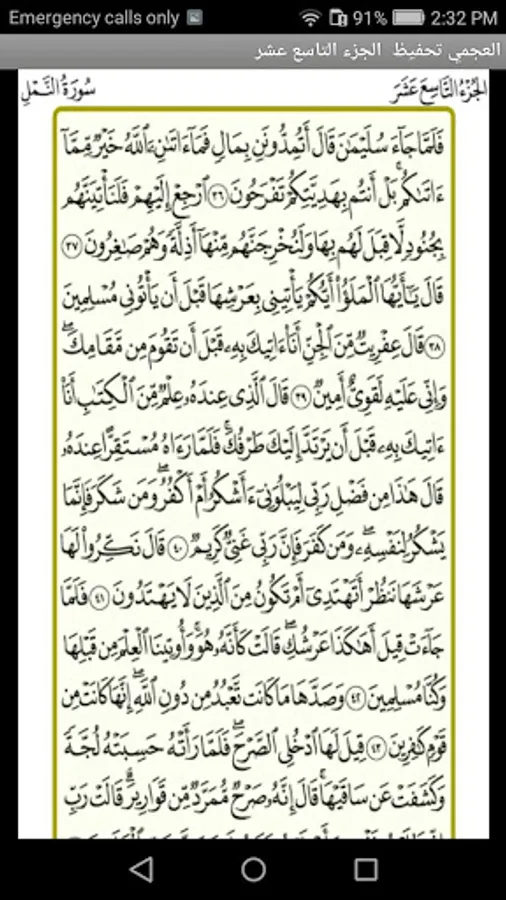 Emergency calls only 91% 2:32 PM
العجمي تحفيظ الجزء التاسع عشر
الجُزْءُ التَّاسِعَ عَشَرَ سُورَةُ النَّمْلِ
فَلَمَّا جَآءَ سُلَيْمَٰنَ قَالَ أَتُمِدُّونَنِ بِمَالٍ فَمَآ ءَاتَىٰنِۦَ ٱللَّهُ خَيْرٌ مِّمَّآ
ءَاتَىٰكُمۚ بَلْ أَنتُم بِهَدِيَّتِكُمْ تَفْرَحُونَ ٣٦ ٱرْجِعْ إِلَيْهِمْ فَلَنَأْتِيَنَّهُم
بِجُنُودٍ لَّا قِبَلَ لَهُم بِهَا وَلَنُخْرِجَنَّهُم مِّنْهَآ أَذِلَّةً وَهُمْ صَٰغِرُونَ ٣٧
قَالَ يَٰٓأَيُّهَا ٱلْمَلَؤُا۟ أَيُّكُمْ يَأْتِينِى بِعَرْشِهَا قَبْلَ أَن يَأْتُونِى مُسْلِمِينَ
٣٨ قَالَ عِفْرِيتٌ مِّنَ ٱلْجِنِّ أَنَا۠ ءَاتِيكَ بِهِۦ قَبْلَ أَن تَقُومَ مِن مَّقَامِكَۖ
وَإِنِّى عَلَيْهِ لَقَوِىٌّ أَمِينٌ ٣٩ قَالَ ٱلَّذِى عِندَهُۥ عِلْمٌ مِّنَ ٱلْكِتَٰبِ أَنَا۠
ءَاتِيكَ بِهِۦ قَبْلَ أَن يَرْتَدَّ إِلَيْكَ طَرْفُكَۚ فَلَمَّا رَءَاهُ مُسْتَقِرًّا عِندَهُۥ
قَالَ هَٰذَا مِن فَضْلِ رَبِّى لِيَبْلُوَنِىٓ ءَأَشْكُرُ أَمْ أَكْفُرُۖ وَمَن شَكَرَ فَإِنَّمَا
يَشْكُرُ لِنَفْسِهِۦۖ وَمَن كَفَرَ فَإِنَّ رَبِّى غَنِىٌّ كَرِيمٌ ٤٠ قَالَ نَكِّرُوا۟ لَهَا
عَرْشَهَا نَنظُرْ أَتَهْتَدِىٓ أَمْ تَكُونُ مِنَ ٱلَّذِينَ لَا يَهْتَدُونَ ٤١ فَلَمَّا
جَآءَتْ قِيلَ أَهَٰكَذَا عَرْشُكِۖ قَالَتْ كَأَنَّهُۥ هُوَۚ وَأُوتِينَا ٱلْعِلْمَ مِن قَبْلِهَا
وَكُنَّا مُسْلِمِينَ ٤٢ وَصَدَّهَا مَا كَانَت تَّعْبُدُ مِن دُونِ ٱللَّهِۖ إِنَّهَا كَانَتْ مِن
قَوْمٍ كَٰفِرِينَ ٤٣ قِيلَ لَهَا ٱدْخُلِى ٱلصَّرْحَۖ فَلَمَّا رَأَتْهُ حَسِبَتْهُ لُجَّةً
وَكَشَفَتْ عَن سَاقَيْهَاۚ قَالَ إِنَّهُۥ صَرْحٌ مُّمَرَّدٌ مِّن قَوَارِيرَۗ قَالَتْ رَبِّ